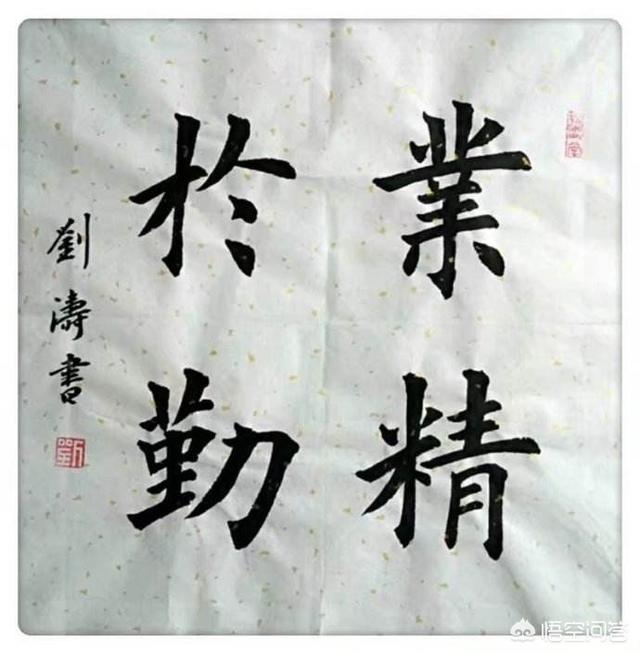 業精
於勤
劉濤書
劉
悟空问答